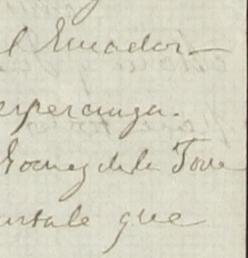 l Ecuador—
esperanza.
Gomez de la Torre
que